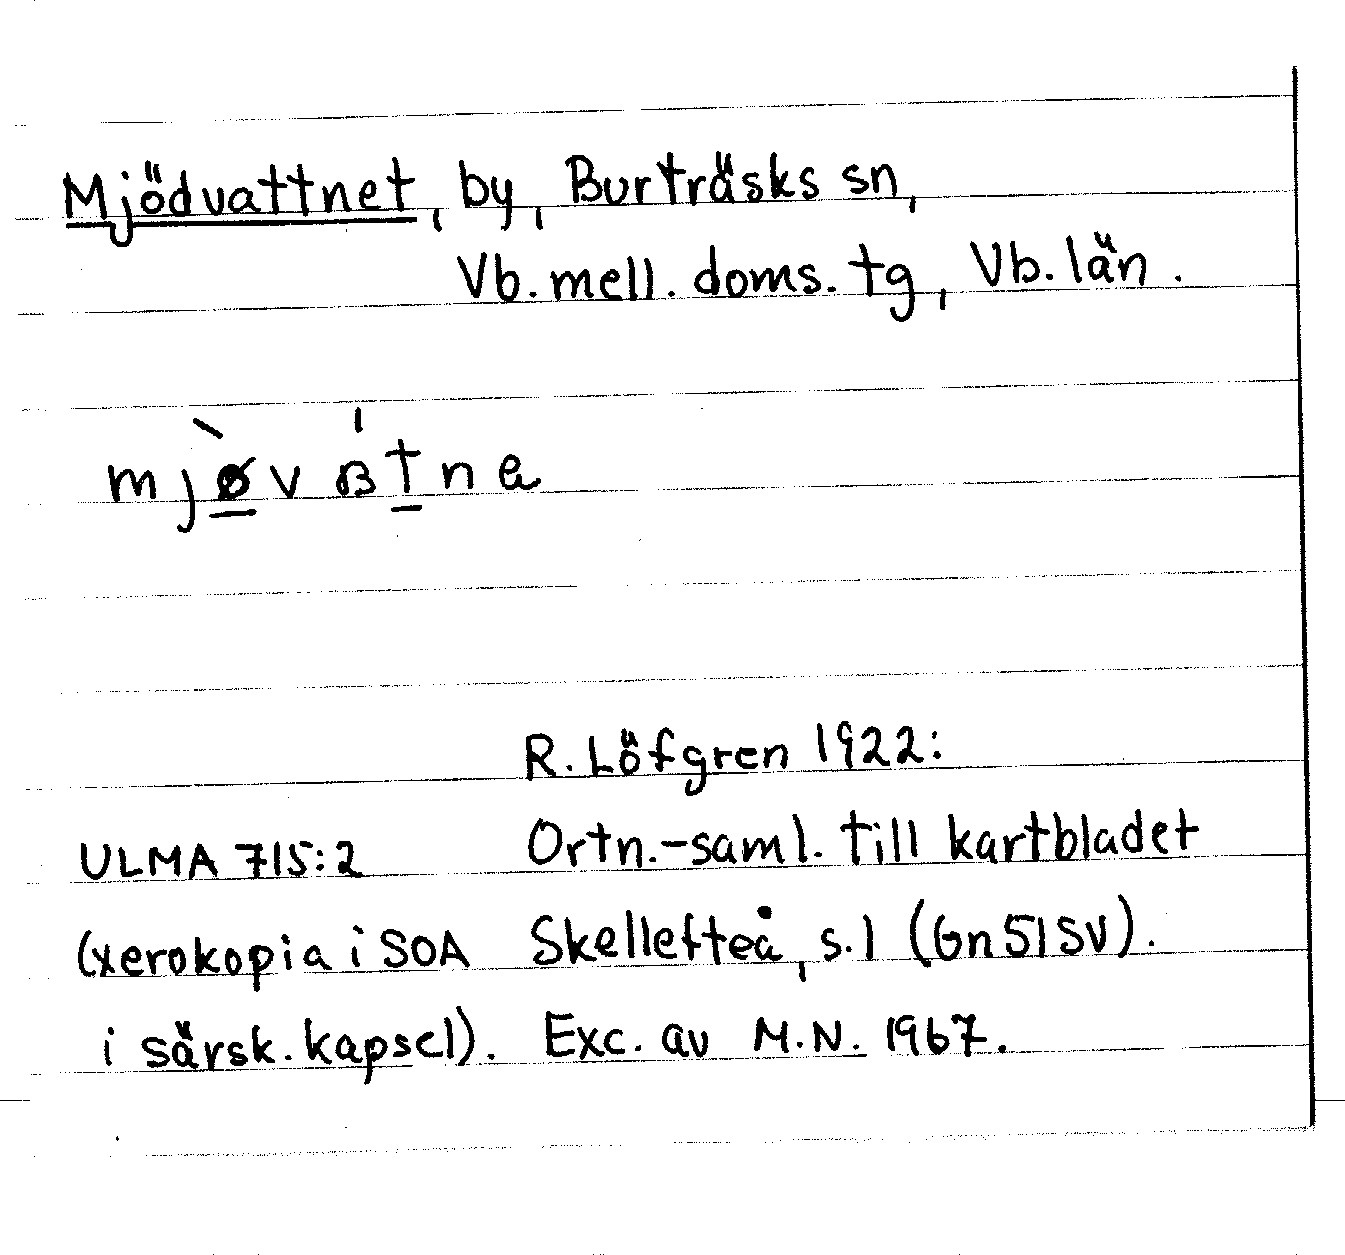 Mjödvattnet, by, Burträsks sn,
Vb. mell. doms. tg, Vb. län.
mjø̲̀vßt̲ne
R. Löfgren 1922:
ULMA 715:2 Ortn.-saml. till kartbladet
(xerokopia i SOA Skellefteå, s.1 (Gn51SV).
i särsk. kapsel). Exc. av M.N. 1967.